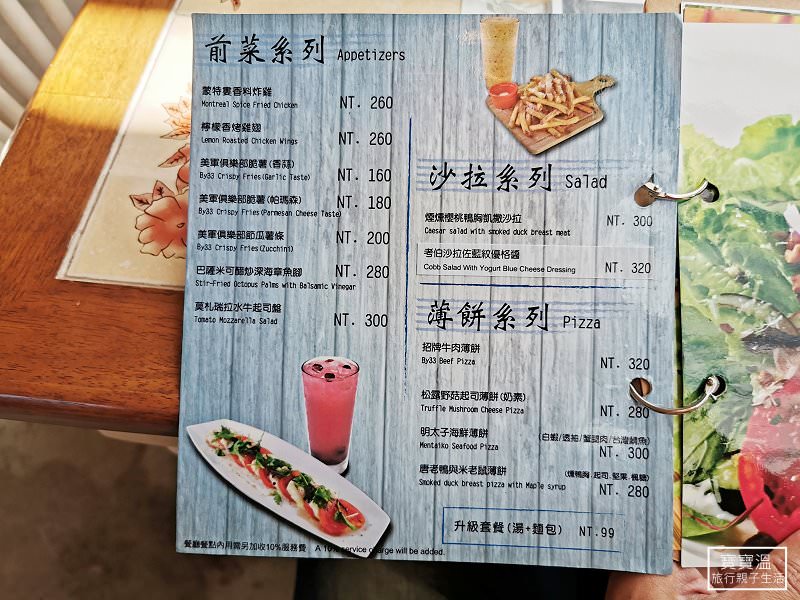 前菜系列 Appetizers
蒙特婁香料炸雞
Montreal Spice Fried Chicken NT. 260
檸檬香烤雞翅
Lemon Roasted Chicken Wings NT. 260
美軍俱樂部脆薯(香蒜)
By33 Crispy Fries(Garlic Taste) NT. 160
美軍俱樂部脆薯(帕瑪森)
By33 Crispy Fries(Parmesan Cheese Taste) NT. 180
美軍俱樂部節瓜薯條
By33 Crispy Fries(Zucchini) NT. 200
巴薩米可醋炒深海章魚腳
Stir-Fried Octopus Palms with Balsamic Vinegar NT. 280
莫札瑞拉水牛起司盤
Tomato Mozzarella Salad NT. 300
餐廳餐點內用需另加收10%服務費 A 10% service charge will be added.
沙拉系列 Salad
煙燻櫻桃鴨胸凱撒沙拉
Caesar salad with smoked duck breast meat NT. 300
考伯沙拉佐藍紋優格醬
Cobb Salad With Yogurt Blue Cheese Dressing NT. 320
薄餅系列 Pizza
招牌牛肉薄餅
By33 Beef Pizza NT. 320
松露野菇起司薄餅(奶素)
Truffle Mushroom Cheese Pizza NT. 280
明太子海鮮薄餅 (白蝦/透抽/蟹腿肉/台灣鯛魚)
Mentaiko Seafood Pizza NT. 300
唐老鴨與米老鼠薄餅 (燻鴨胸.起司.堅果.楓糖)
Smoked duck breast pizza with Maple syrup NT. 280
升級套餐(湯+麵包) NT.99
寶寶溫
旅行親子生活